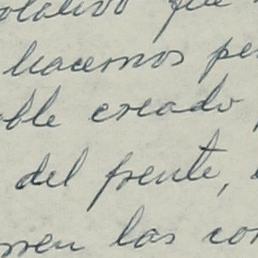 que
hacemos pe
ble creado
del frente,
men las con